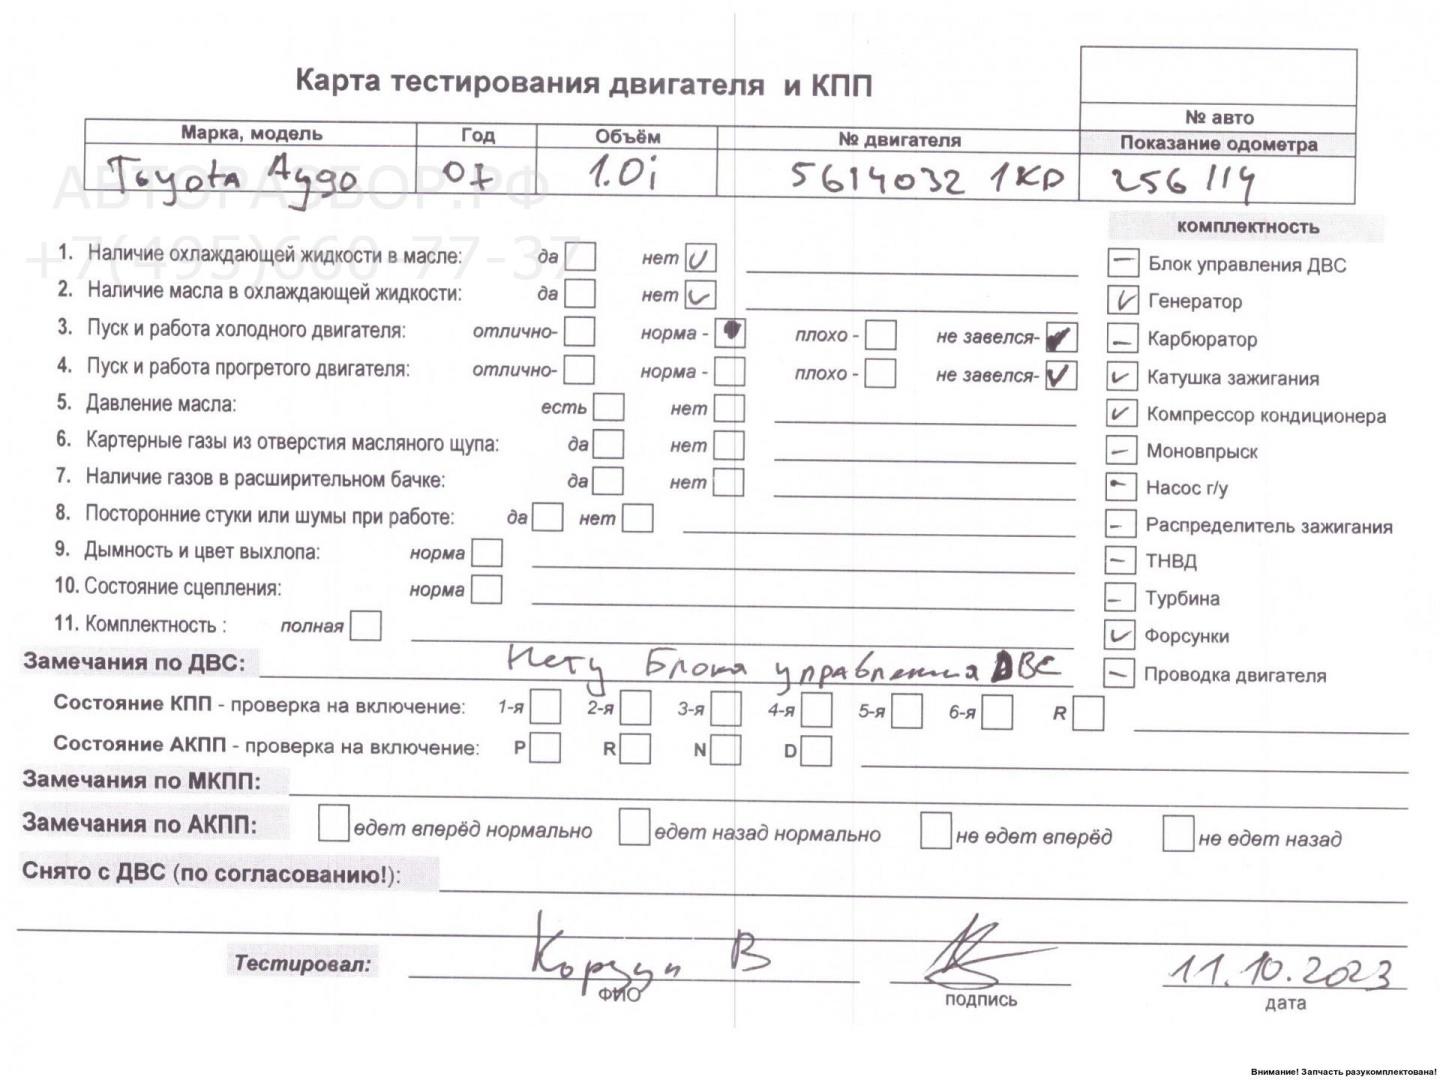 Карта тестирования двигателя и КПП
№ авто
Марка, модель Год Объём № двигателя Показание одометра
Toyota Aygo 07 1.0i 5614032 1KD 256114
АВТОРАЗБОР.РФ
+7(495)660-77-37
комплектность
1. Наличие охлаждающей жидкости в масле: да нет
Блок управления ДВС
2. Наличие масла в охлаждающей жидкости: да нет
Генератор
3. Пуск и работа холодного двигателя: отлично- норма - плохо - не завелся-
Карбюратор
4. Пуск и работа прогретого двигателя: отлично- норма - плохо - не завелся-
Катушка зажигания
5. Давление масла: есть нет
Компрессор кондиционера
6. Картерные газы из отверстия масляного щупа: да нет
Моновпрыск
7. Наличие газов в расширительном бачке: да нет
Насос г/у
8. Посторонние стуки или шумы при работе: да нет
Распределитель зажигания
9. Дымность и цвет выхлопа: норма
ТНВД
10. Состояние сцепления: норма
Турбина
11. Комплектность : полная
Форсунки
Замечания по ДВС: Нету Блока управления ДВС
Проводка двигателя
Состояние КПП - проверка на включение: 1-я 2-я 3-я 4-я 5-я 6-я R
Состояние АКПП - проверка на включение: P R N D
Замечания по МКПП:
Замечания по АКПП: едет вперёд нормально едет назад нормально не едет вперёд не едет назад
Снято с ДВС (по согласованию!):
Тестировал: Корзун В 11.10.2023
ФИО подпись дата
Внимание! Запчасть разукомплектована!